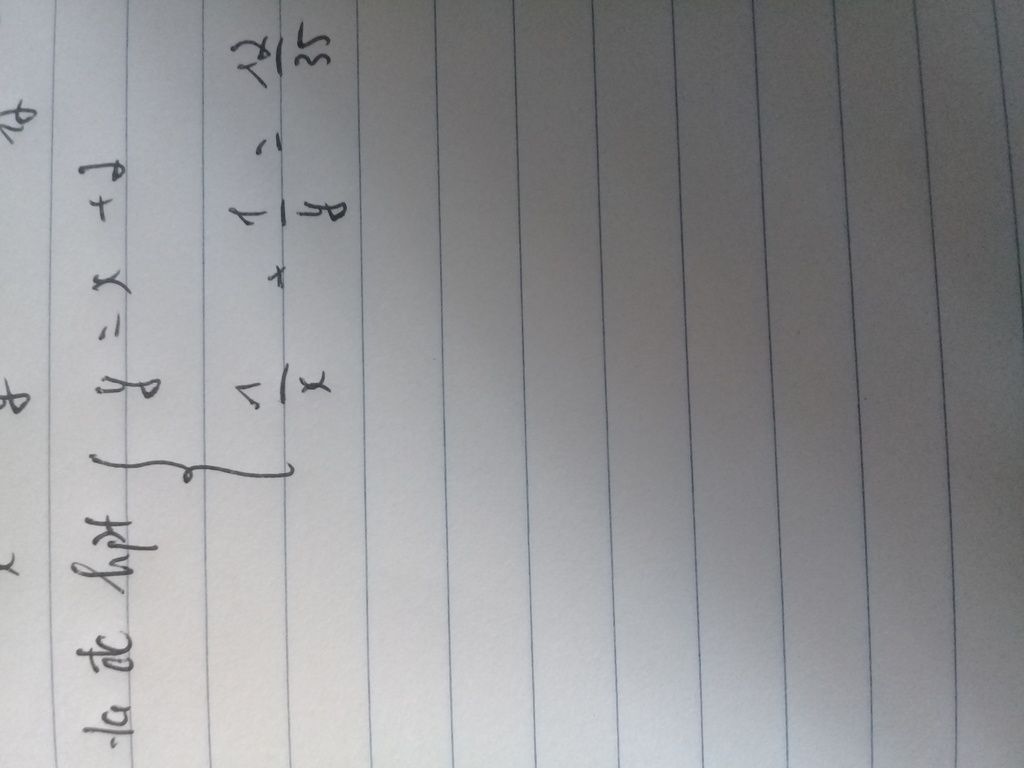 Ta đc hpt { y = x + 2
1/x + 1/y = 12/35